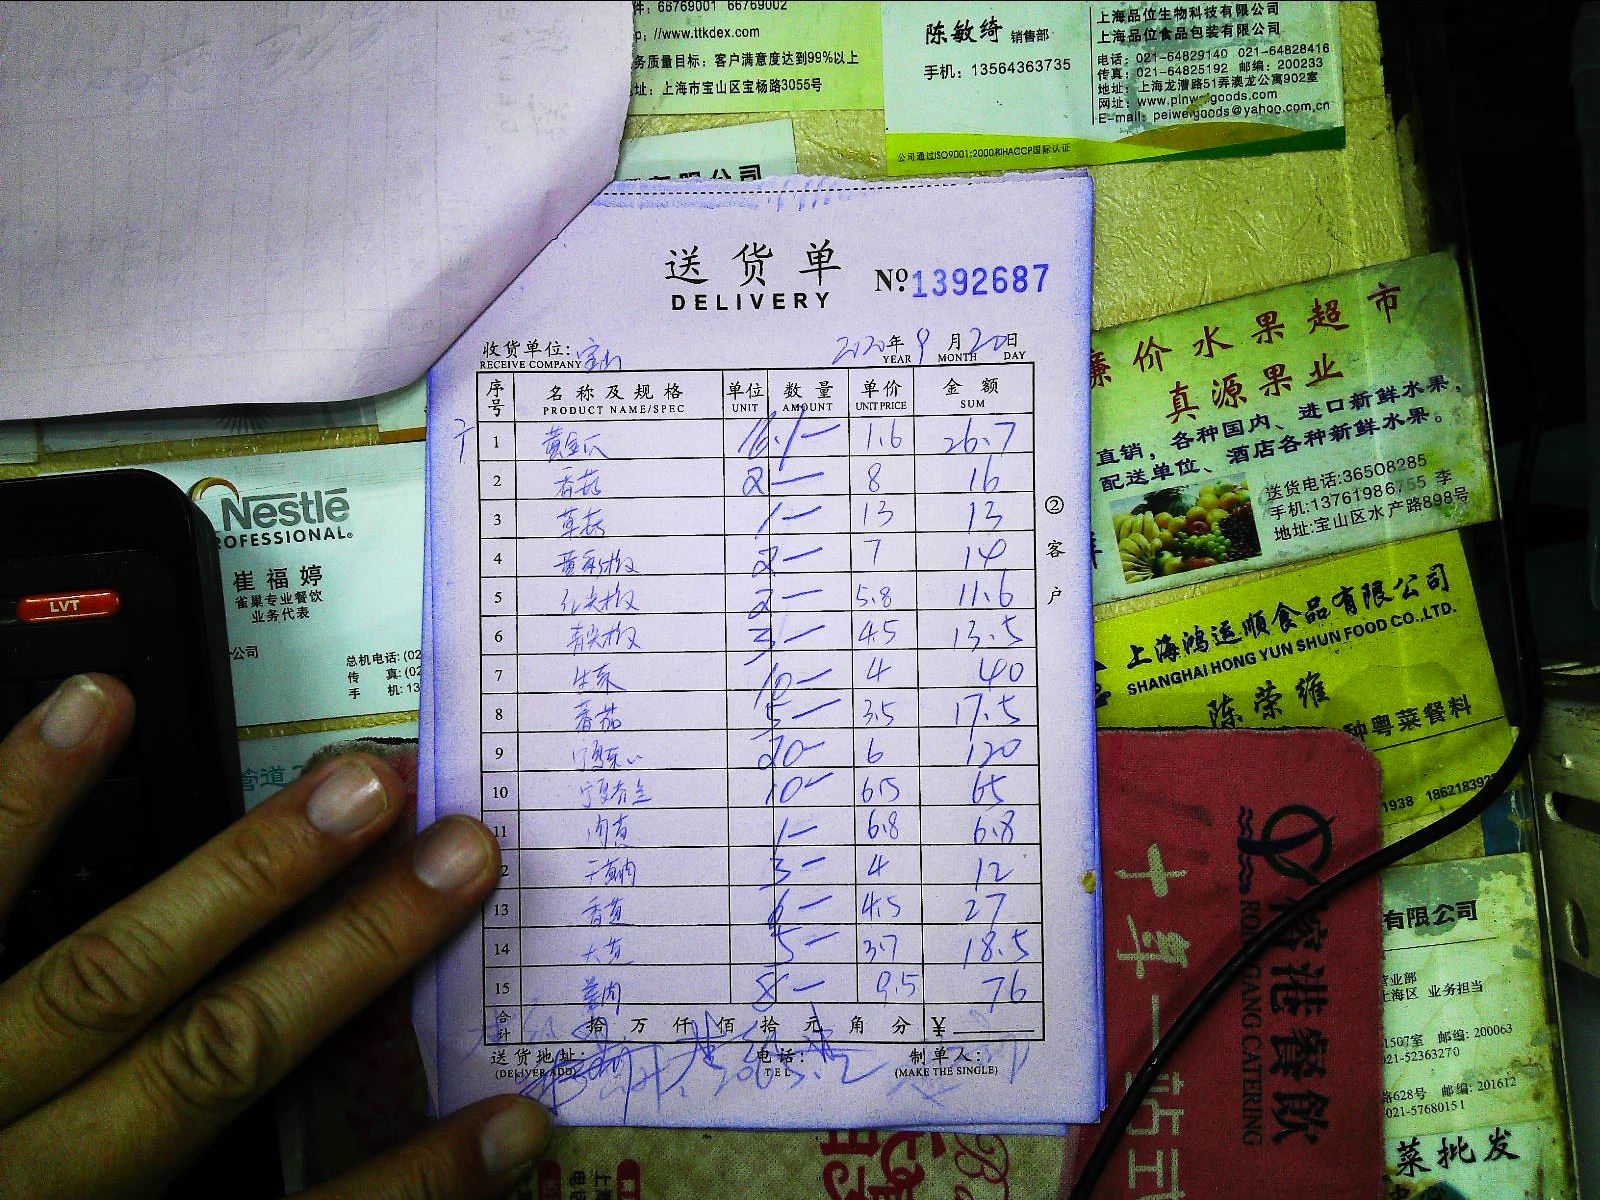 件: 66769001 66769002
://www.ttkdex.com
务质量目标: 客户满意度达到99%以上
址: 上海市宝山区宝杨路3055号
陈敏绮 销售部
手机: 13564363735
上海品位生物科技有限公司
上海品位食品包装有限公司
电话: 021-64829140 021-64828416
传真: 021-64825192 邮编: 200233
地址: 上海龙漕路51弄澳龙公寓902室
E-mail: peiweigoods@yahoo.com.cn
公司通过ISO9001:2000和HACCP国际认证
有限公司
送货单
DELIVERY
№1392687
收货单位: 宝山
RECEIVE COMPANY
2020年 9月 20日
YEAR MONTH DAY
序号 名称及规格 单位 数量 单价 金额
PRODUCT NAME/SPEC UNIT AMOUNT UNIT PRICE SUM
1 黄金瓜 16.7— 1.6 26.7
2 香菇 2— 8 16
3 草菇 1— 13 13
4 黄彩椒 2— 7 14
5 红尖椒 2— 5.8 11.6
6 青尖椒 3— 4.5 13.5
7 生菜 10— 4 40
8 蕃茄 5— 3.5 17.5
9 20— 6 120
10 10— 6.5 65
11 1— 6.8 6.8
12 3— 4 12
13 6— 4.5 27
14 5— 3.7 18.5
15 8— 9.5 76
合计 拾 万 仟 佰 拾 元 角 分 ¥
送货地址: 电话: 制单人:
(DELIVER ADD) TEL (MAKE THE SINGLE)
②客户
廉价水果超市
真源果业
直销, 各种国内、进口新鲜水果,
配送单位、酒店各种新鲜水果。
送货电话:36508285
手机:13761986755 李
地址:宝山区水产路898号
上海鸿运顺食品有限公司
SHANGHAI HONG YUN SHUN FOOD CO.,LTD.
陈荣维
种粤菜餐料
1938 186218392
Nestlé
PROFESSIONAL®
崔福婷
雀巢专业餐饮
业务代表
公司
总机电话: (02
传 真: (02
手 机: 13
LVT
管道
榕港餐飲
RONGGANG CATERING
十年一站式
有限公司
营业部
上海区 业务担当
1507室 邮编: 200063
021-52363270
路628号 邮编: 201612
021-57680151
菜批发